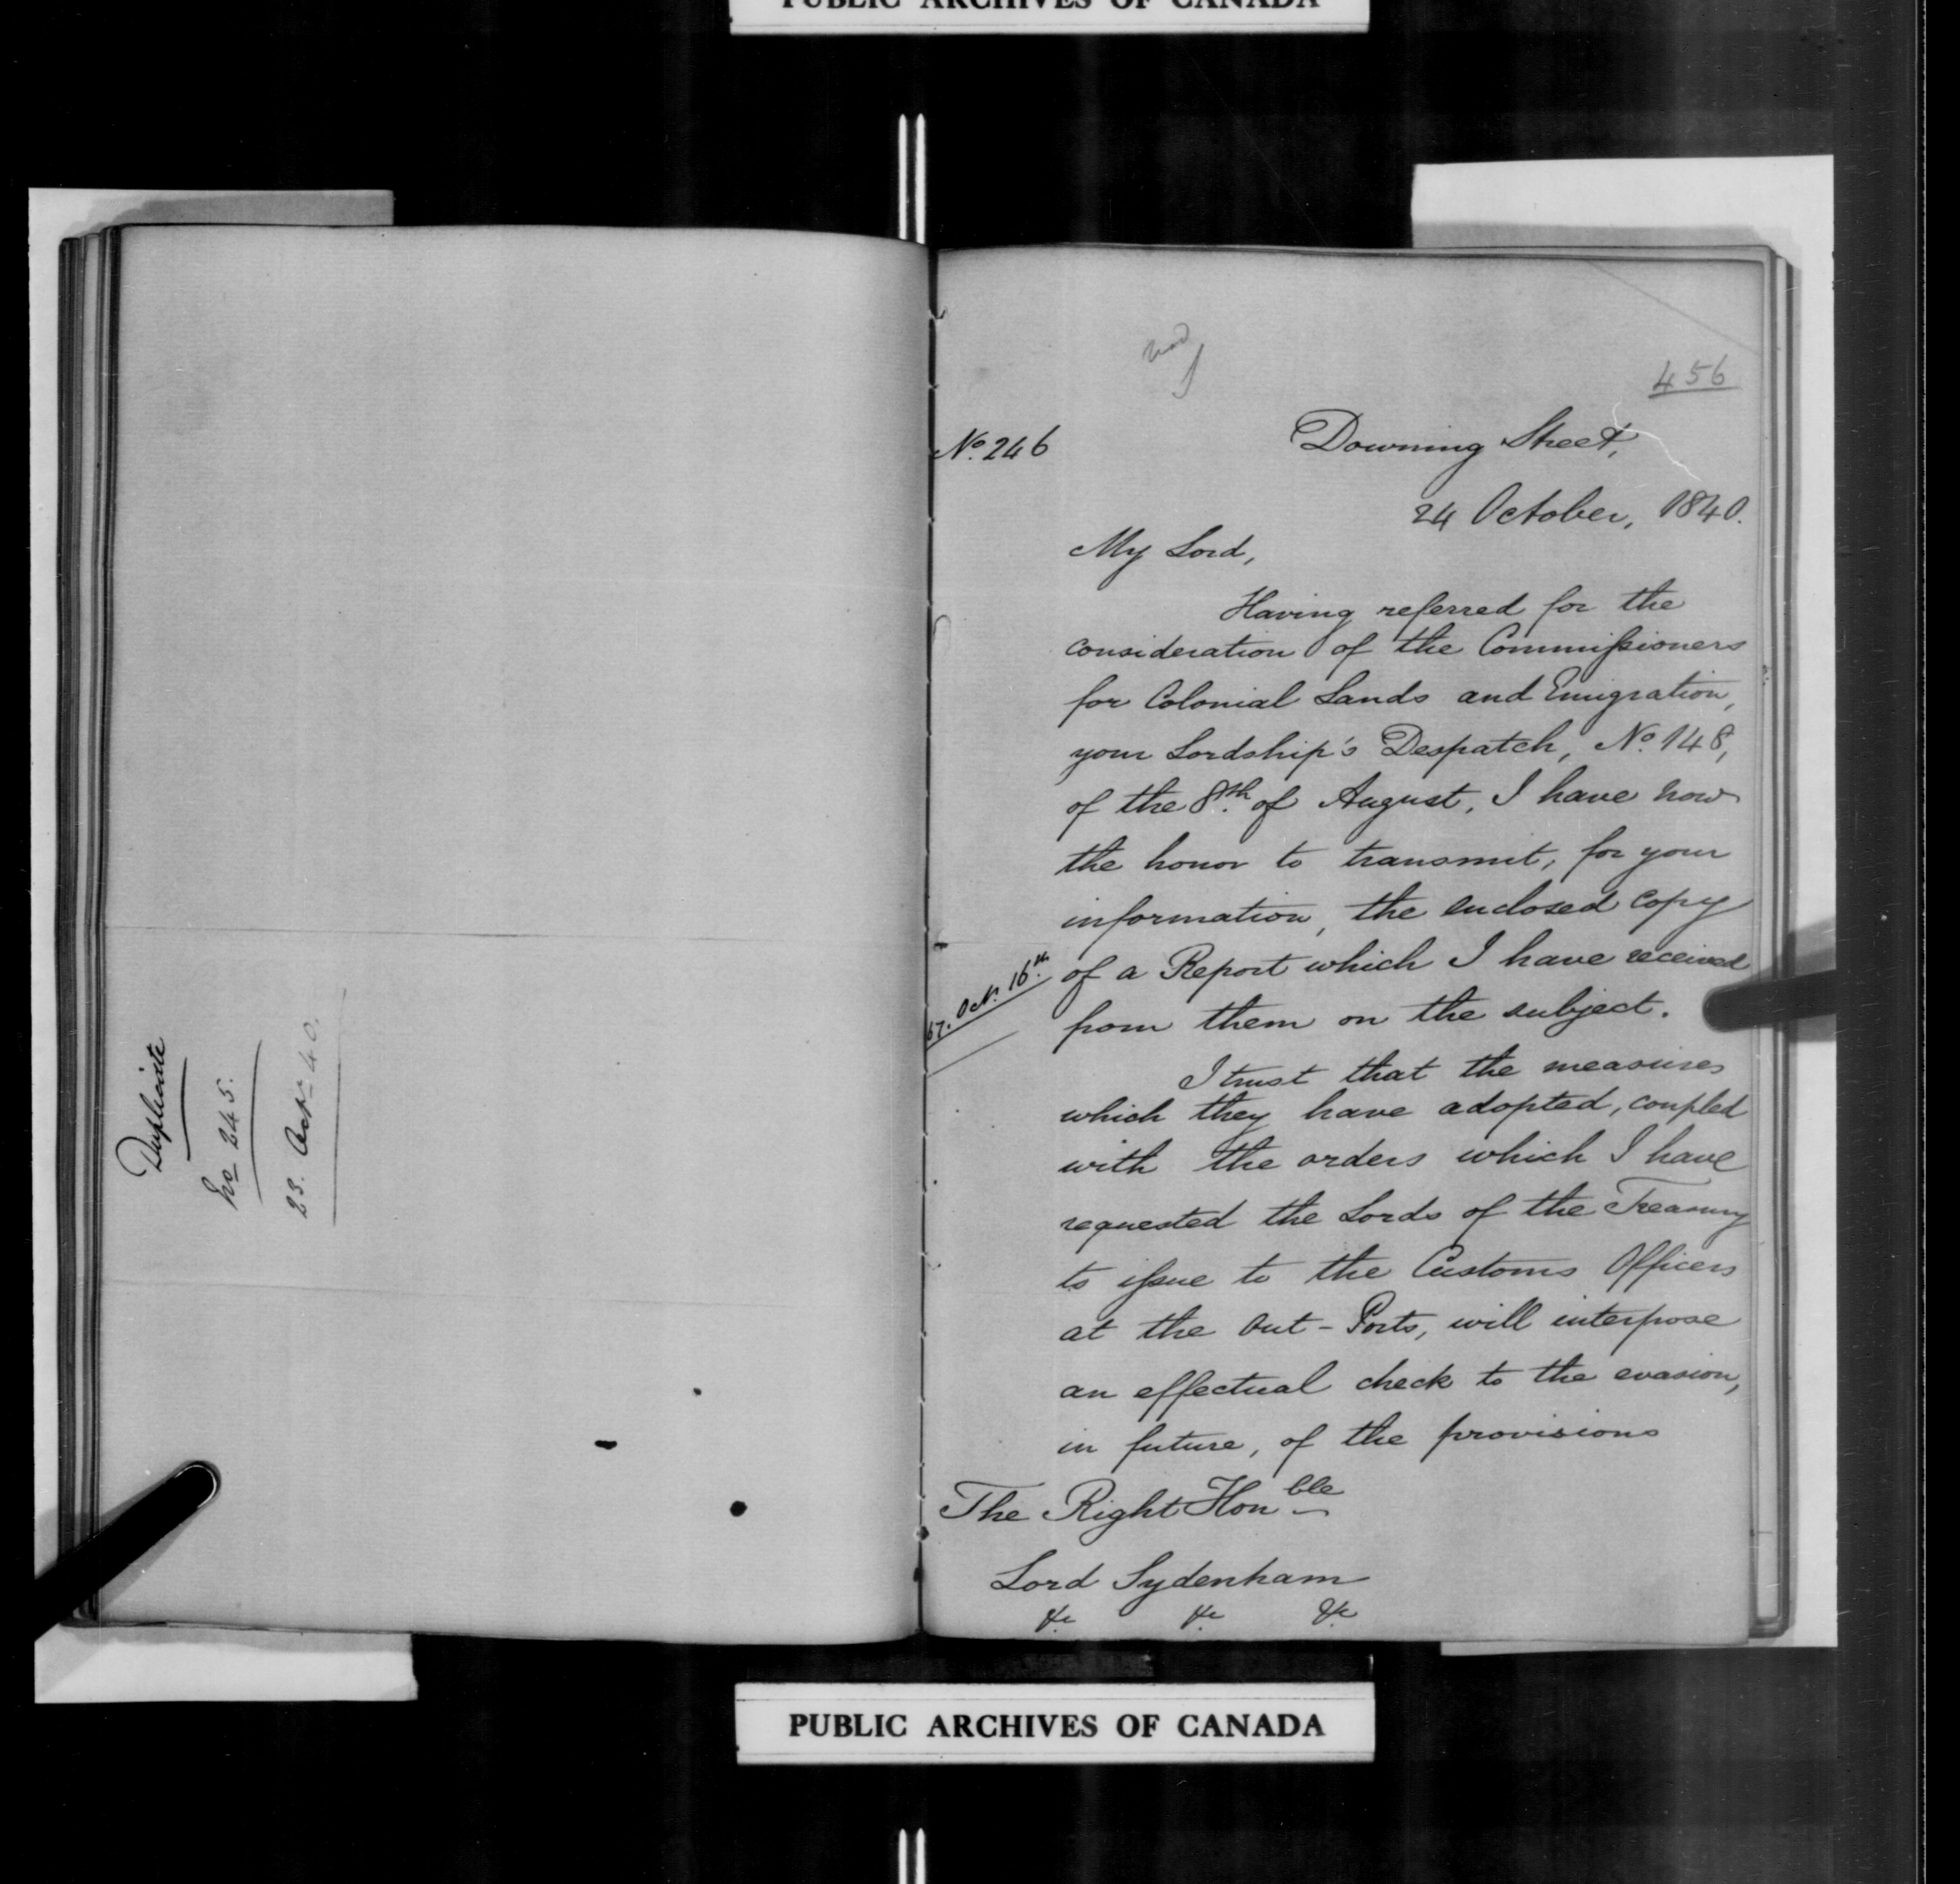 PUBLIC ARCHIVES OF CANADA
Duplicate
No 245.
23. Octr 40.
456
No. 246
Downing Street,
24 October, 1840.
My Lord,
Having referred for the
consideration of the Commissioners
for Colonial Lands and Emigration,
your Lordship's Despatch, No. 148,
of the 8th of August, I have now
the honor to transmit, for your
information, the enclosed copy
67. Octr. 16th.
of a Report which I have received
from them on the subject.
I trust that the measures
which they have adopted, coupled
with the orders which I have
requested the Lords of the Treasury
to issue to the Customs Officers
at the Out-Ports, will interpose
an effectual check to the evasion,
in future, of the provisions
The Right Honble
Lord Sydenham
&c &c &c
PUBLIC ARCHIVES OF CANADA